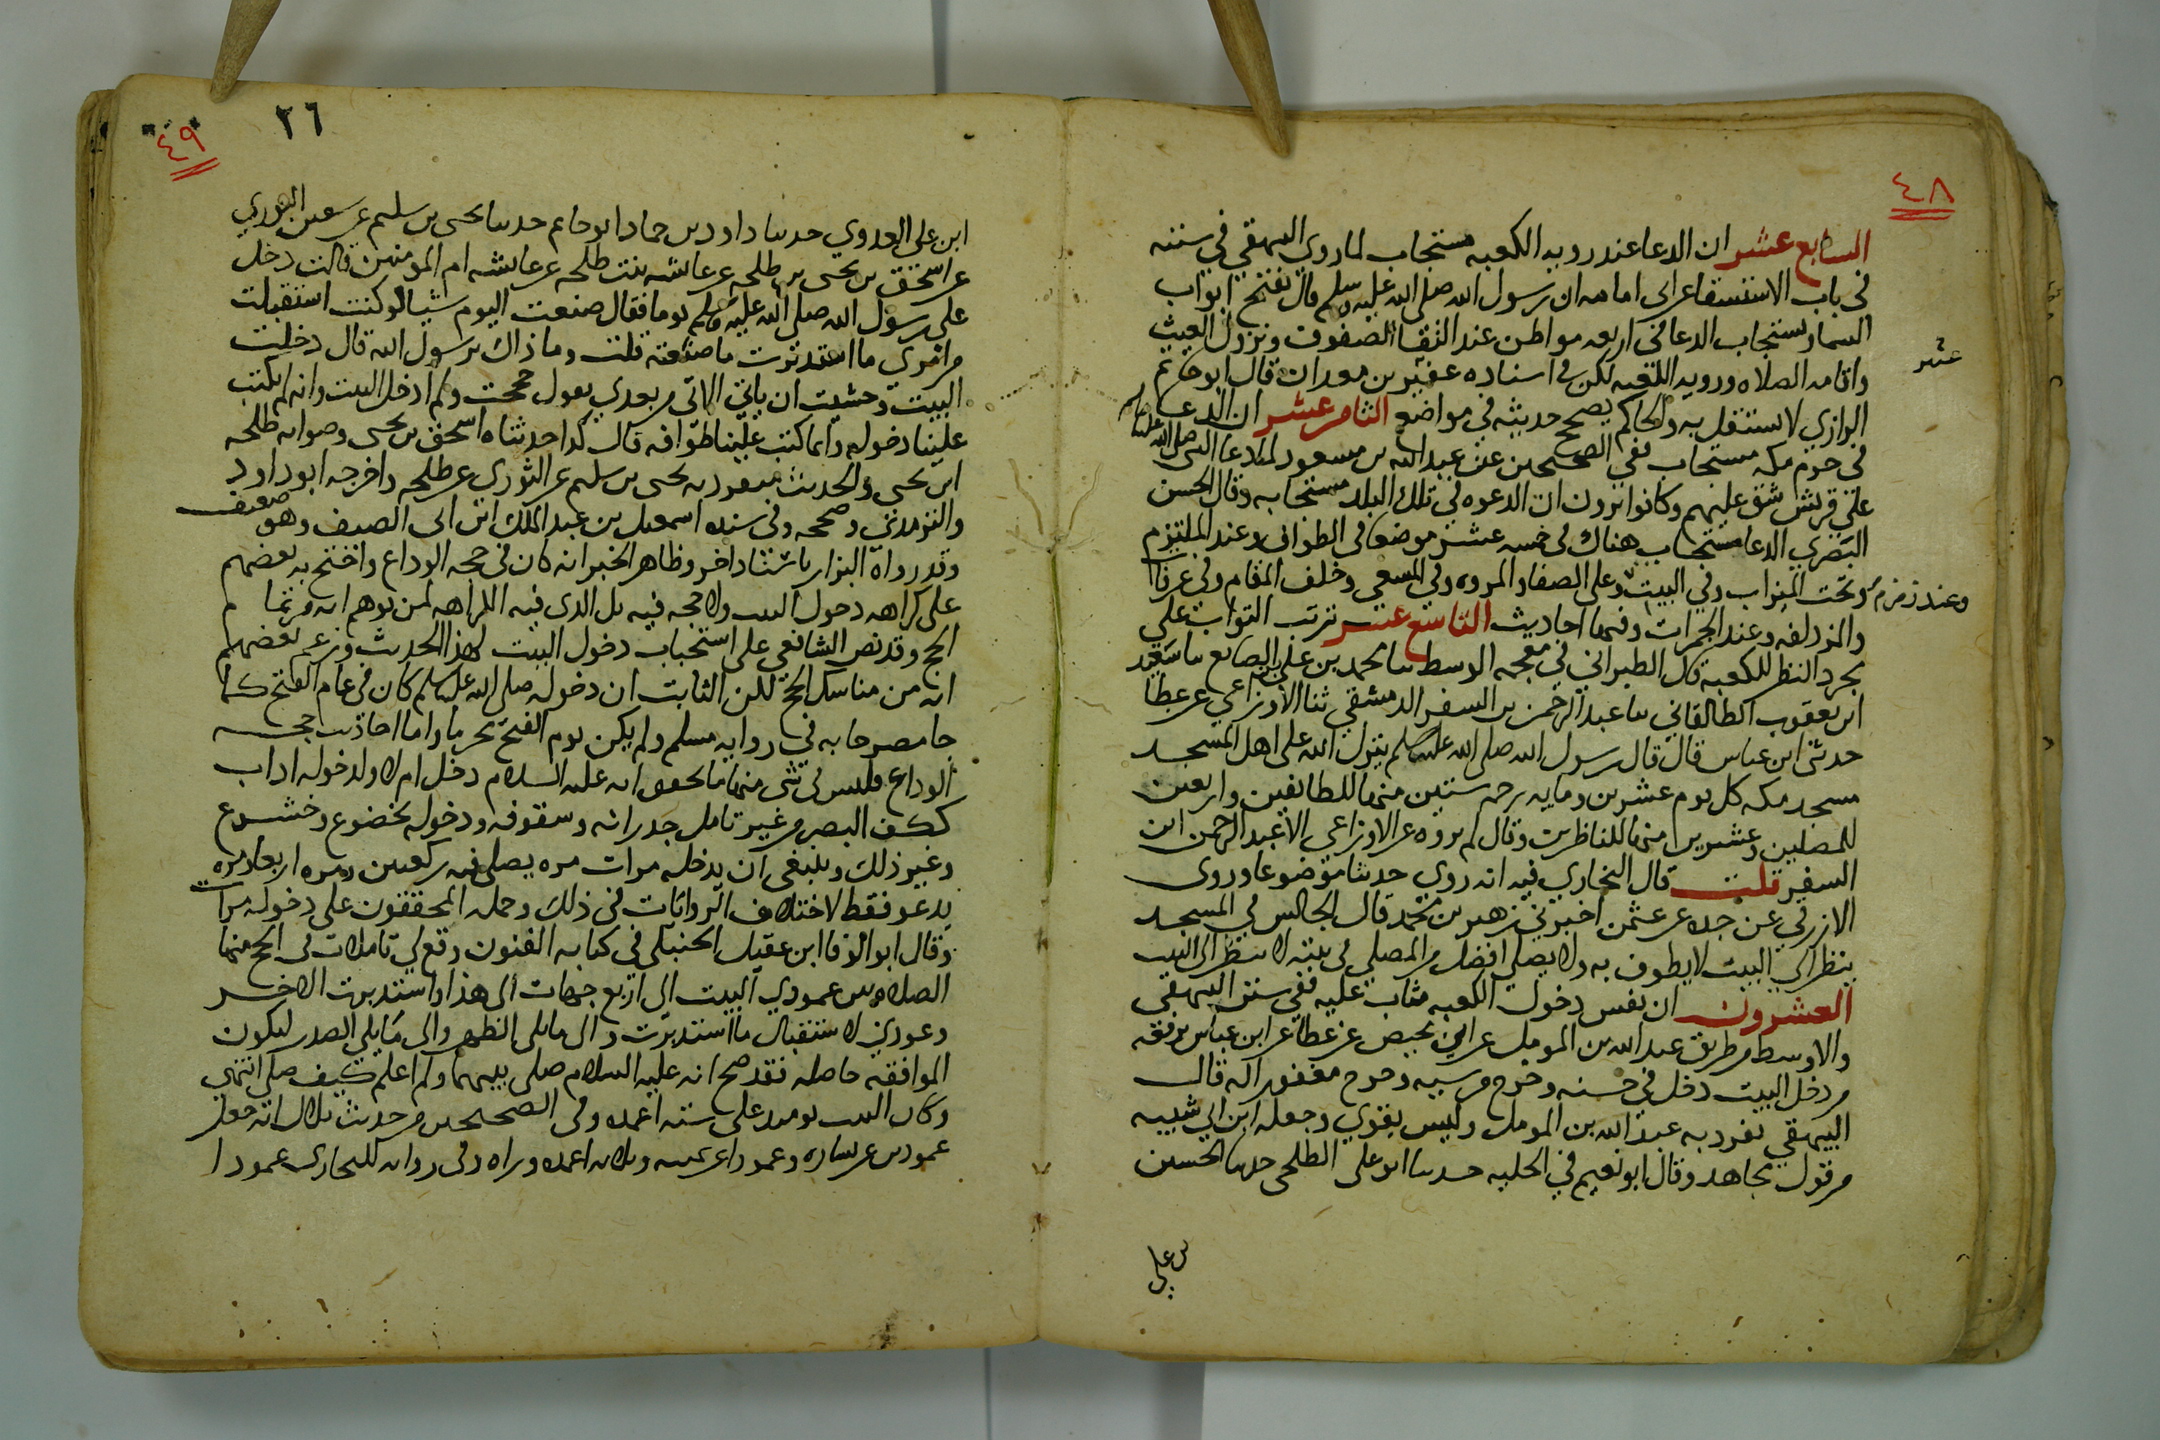 ٤٨
السابع عشر ان الدعا عند رويه الكعبه مستجاب لما روى البيهقي في سننه
في باب الاستسقا عن ابى امامه ان رسول الله صلى الله عليه وسلم قال تفتح ابواب
السما ويستجاب الدعا في اربعه مواطن عند التقا الصفوف ونزول الغيث
واقامه الصلاه ورويه الكعبه لكن في اسناده عفير بن معدان قال ابو حاتم
الرازي لا يشتغل به والحاكم يصحح حديثه في مواضع الثامن عشر ان الدعا
في حرم مكه مستجاب ففي الصحيحين عن عبد الله بن مسعود لما دعا النبي صلى الله عليه وسلم
على قريش شق عليهم وكانوا يرون ان الدعوه في تلك البلد مستجابه وقال الحسن
البصري الدعا مستجاب هناك في خمسه عشر موضعا في الطواف وعند الملتزم
وتحت الميزاب وفي البيت وعلى الصفا والمروه وفي المسعى وخلف المقام وفي عرفات
وعند زمزم
والمزدلفه وعند الجمرات وفيها احاديث التاسع عشر ترتب الثواب على
عشر
مجرد النظر للكعبه قال الطبراني في معجمه الوسط سا محمد بن علي الصايغ سا سعيد
ابن يعقوب الطالقاني سا عبد الرحمن بن السفر الدمشقي ثنا الاوزاعي عن عطا
حدثني ابن عباس قال قال رسول الله صلى الله عليه وسلم ينزل الله على اهل المسجد
مسجد مكه كل يوم عشرين ومايه رحمه ستين منها للطايفين واربعين
للمصلين وعشرين منها للناظرين وقال لم يروه عن الاوزاعي الا عبد الرحمن ابن
السفر قلت قال البخاري فيه انه روى حديثا موضوعا وروى
الازرقي عن جده عن عثمن اخبرني زهير بن محمد قال الجالس في المسجد
ينظر الى البيت لا يطوف به ولا يصلي افضل من المصلي في بيته لا ينظر الى البيت
العشرون ان نفس دخول الكعبه مثاب عليه ففي سنن البيهقي
والاوسط من طريق عبد الله بن المومل عن ابن محيصن عن عطا عن ابن عباس يرفعه
من دخل البيت دخل في حسنه وخرج من سيه وخرج مغفورا له قال
البيهقي تفرد به عبد الله بن المومل وليس بقوي وجعله ابن ابي شيبه
من قول مجاهد وقال ابو نعيم في الحليه حدثنا ابو علي الطلحي حدثنا الحسين
بن علي
٤٩
٢٦
ابن علي العدوي حدثنا داود بن حماد ابو حاتم حدثنا يحيى بن سليم عن سفين الثوري
عن اسحق بن يحيى بن طلحه عن عايشه بنت طلحه عن عايشه ام المومنين قالت دخل
على رسول الله صلى الله عليه وسلم يوما فقال صنعت اليوم شيا لو كنت استقبلت
من امري ما استدبرت ما صنعته قلت وما ذاك يرسول الله قال دخلت
البيت وخشيت ان ياتي الاتي من بعدي يقول حججت ولم ادخل البيت وانه لم يكتب
علينا دخوله وانما كتب علينا طوافه قال كذا حدثناه اسحق بن يحيى وصوابه طلحه
ابن يحيى والحديث تفرد به يحيى بن سليم عن الثوري عن طلحه واخرجه ابو داود
والترمدي وصححه وفي سنده اسمعيل بن عبد الملك ابن ابى الصفير وهو ضعيف
وقد رواه البزار باسناد اخر وظاهر الخبر انه كان في حجه الوداع واحتج به بعضهم
على كراهه دخول البيت ولا حجه فيه بل الذى فيه الكراهه لمن توهم انه من تمام
الحج وقد نص الشافعي على استحباب دخول البيت لهذا الحديث وزعم بعضهم
انه من مناسك الحج لكن الثابت ان دخوله صلى الله عليه وسلم كان في عام الفتح كما
جا مصرحا به في روايه مسلم ولم يكن يوم الفتح محرما واما احاديث حجه
الوداع فليس في شى منها ما تحقق انه عليه السلام دخل ام لا ولدخوله اداب
ككف البصر من غير تامل جدرانه وسقوفه ودخوله بخضوع وخشوع
وغير ذلك وينبغي ان يدخله مرات مره يصلي فيه ركعتين ومره اربعا ومره
يدعو فقط لاختلاف الروايات في ذلك وحمله المحققون على دخوله مرات
وقال ابو الوفا ابن عقيل الحنبلي في كتابه الفنون وقع لي تاملات في الحج منها
الصلاه بين عمودي البيت الى اربع جهات الى هذا واستدبرت الاخر
وعودي لاستقبال ما استدبرت والى ما يلي الظهر والى ما يلي الصدر ليكون
الموافقه حاصله فقد صح انه عليه السلام صلى بينهما ولم اعلم كيف صلى انتهي
وكان البيت يومئذ على سته اعمده وفي الصحيحين من حديث بلال انه جعل
عمودين عن يساره وعمودا عن يمينه وثلاثه اعمده وراه وفي روايه للبخاري عمودا